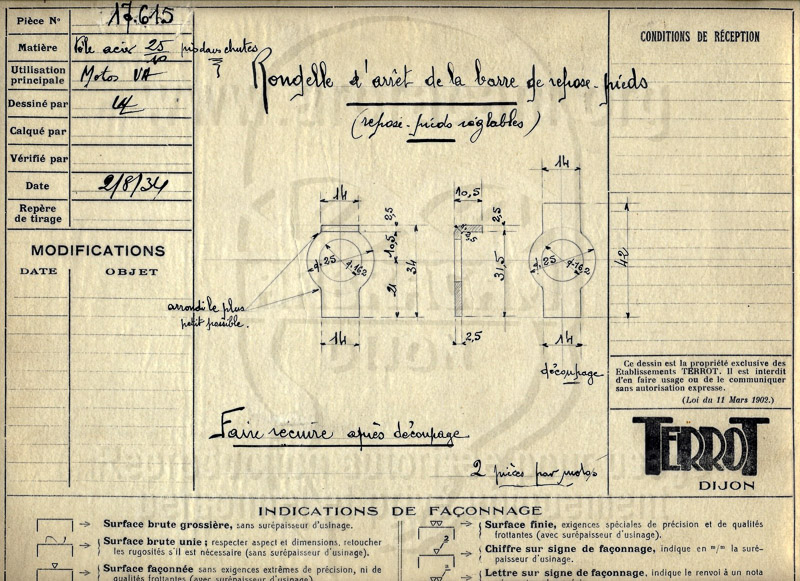 Pièce N° 17.615
Matière Tôle acier 25/10 pris dans chutes
Utilisation principale Motos VA
Dessiné par
Calqué par
Vérifié par
Date 2/8/34
Repère de tirage
MODIFICATIONS
DATE OBJET
Rondelle d'arrêt de la barre de repose-pieds
(repose-pieds réglables)
CONDITIONS DE RÉCEPTION
14
10,5
14
14
2,5
10,5
21
34
2,5
31,5
42
2,5
14
14
arrondi le plus
petit possible.
découpage
Faire recuire après découpage
2 pièces par motos
Ce dessin est la propriété exclusive des
Etablissements TERROT. Il est interdit
d'en faire usage ou de le communiquer
sans autorisation expresse.
(Loi du 11 Mars 1902.)
TERROT
DIJON
INDICATIONS DE FAÇONNAGE
Surface brute grossière, sans surépaisseur d'usinage.
Surface brute unie ; respecter aspect et dimensions, retoucher
les rugosités s'il est nécessaire (sans surépaisseur d'usinage).
Surface façonnée sans exigences extrêmes de précision, ni de
qualités frottantes (avec surépaisseur d'usinage).
Surface finie, exigences spéciales de précision et de qualités
frottantes (avec surépaisseur d'usinage).
Chiffre sur signe de façonnage, indique en m/m la suré-
paisseur d'usinage.
Lettre sur signe de façonnage, indique le renvoi à un nota